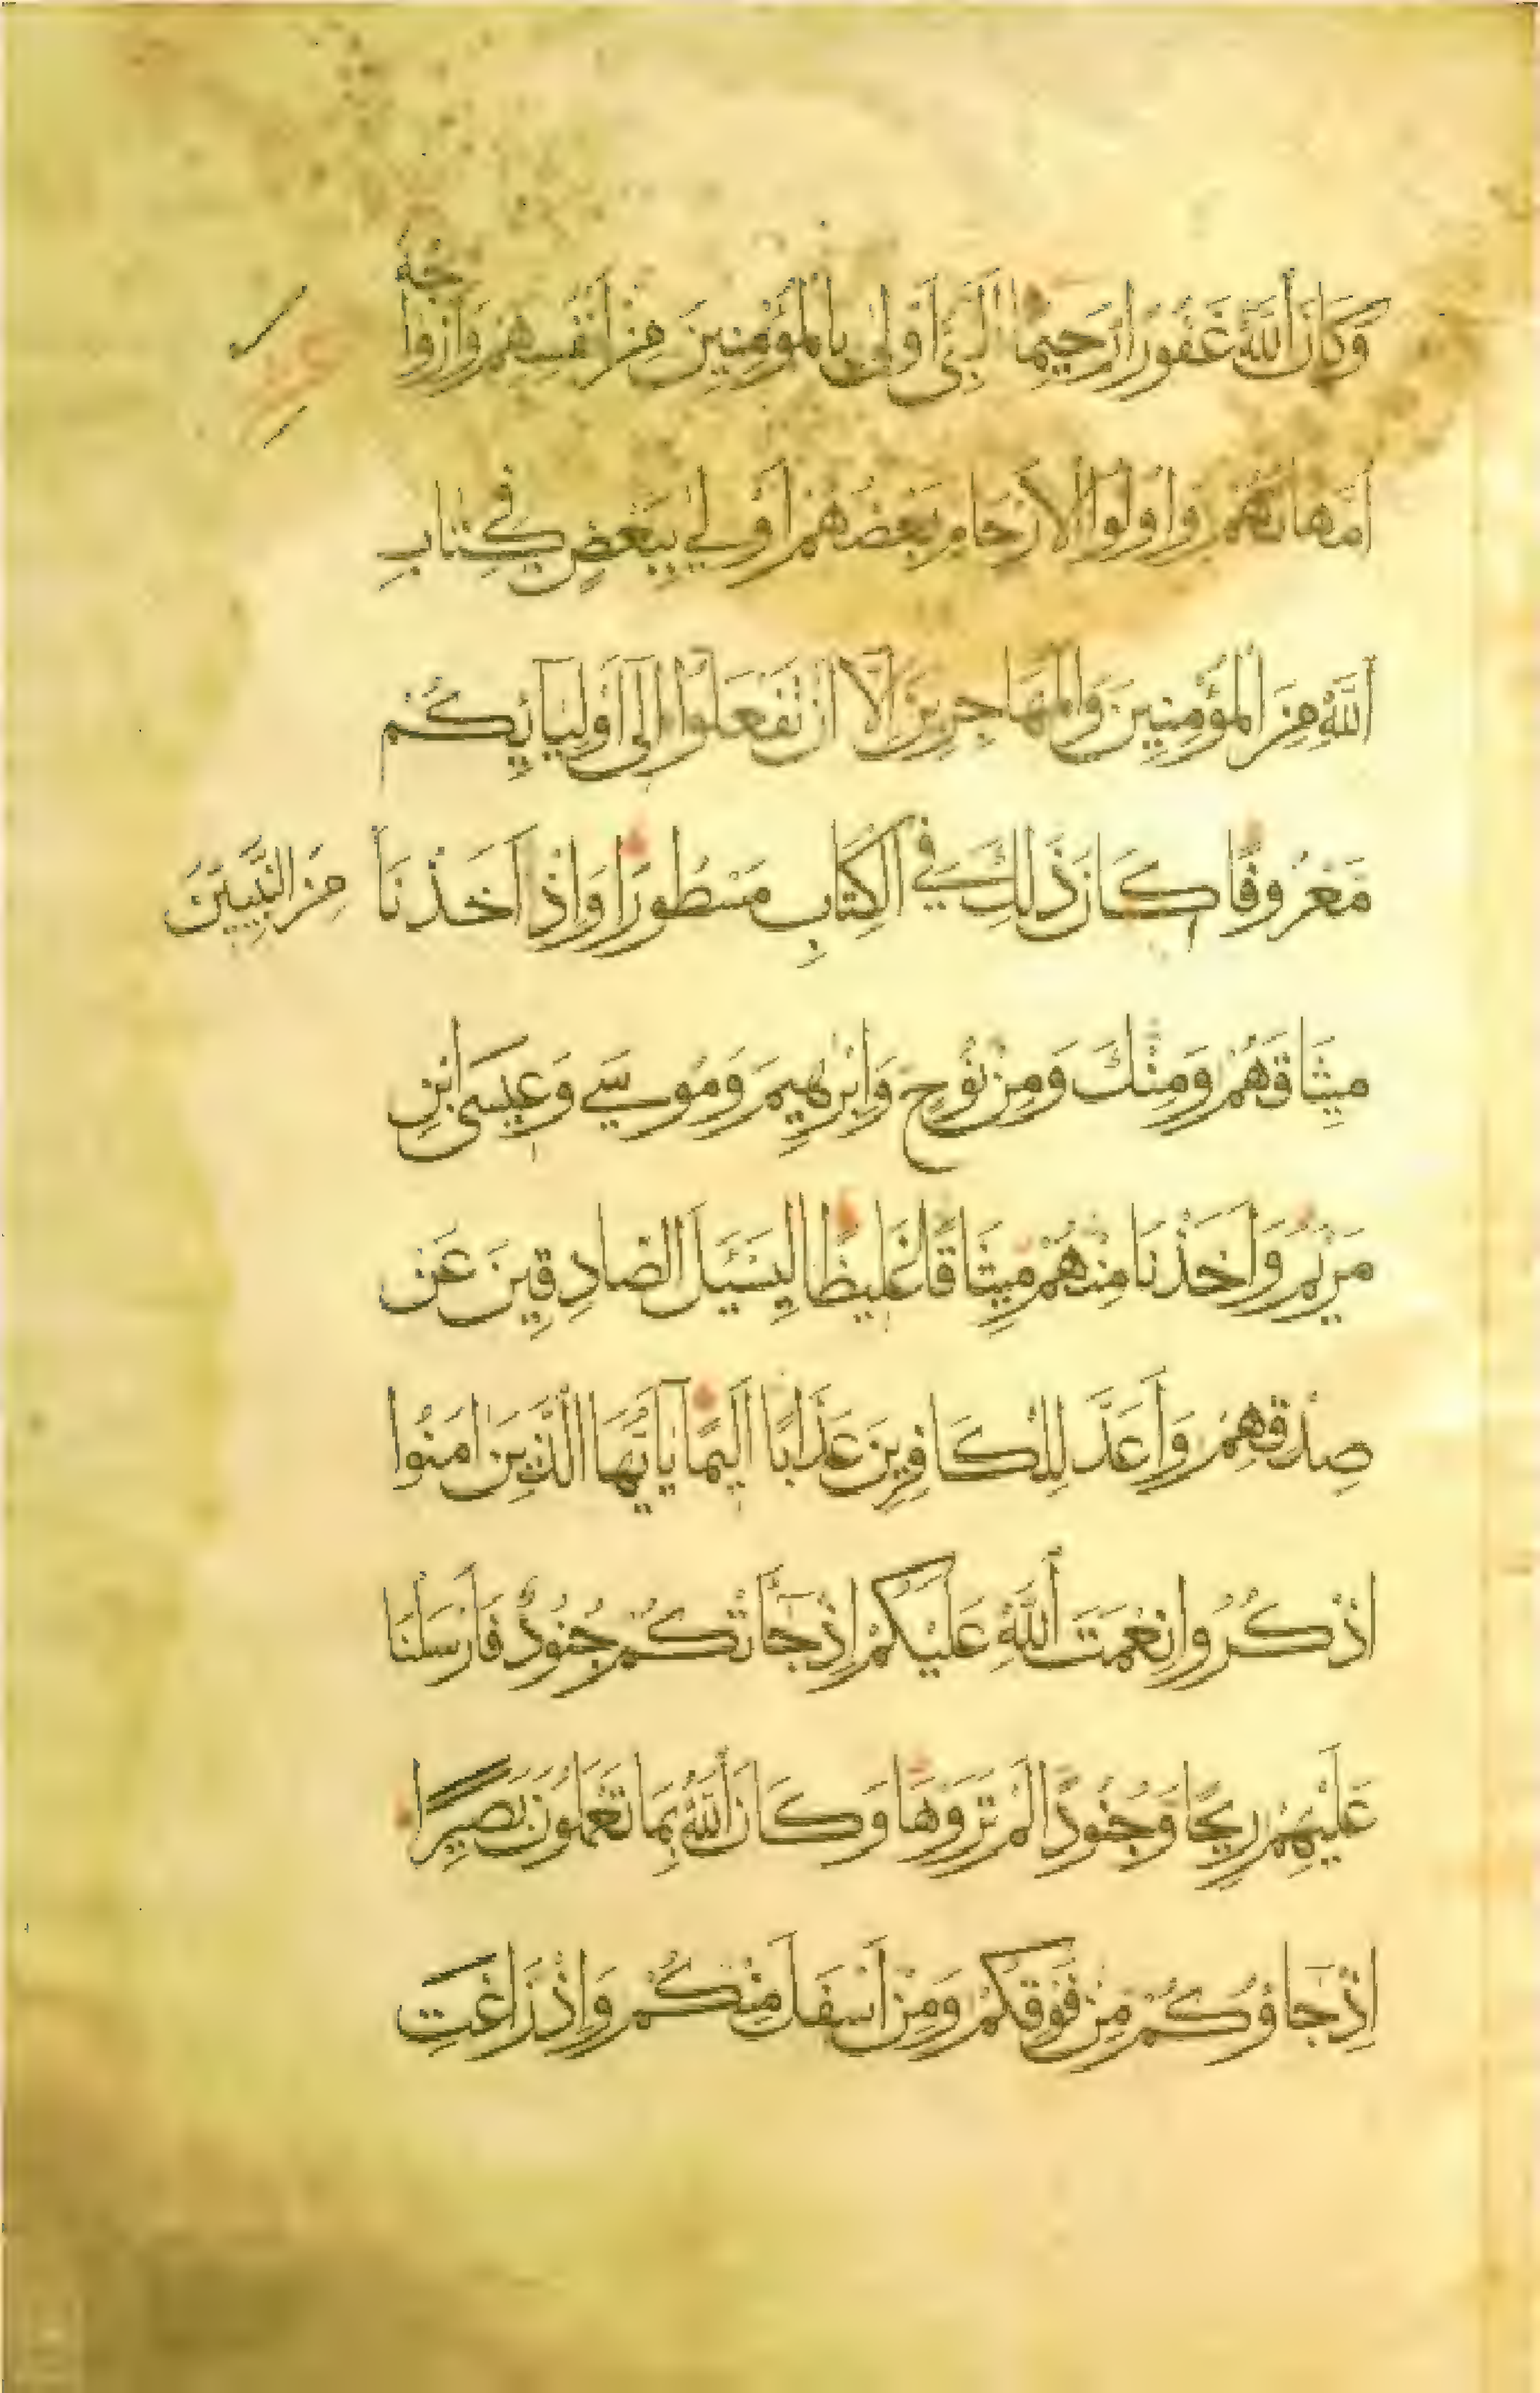 وَكَانَ اللَّهُ غَفُورًا رَحِيمًا النَّبِيُّ أَوْلَىٰ بِالْمُؤْمِنِينَ مِنْ أَنْفُسِهِمْ وَأَزْوَاجُهُ
أُمَّهَاتُهُمْ وَأُولُوا الْأَرْحَامِ بَعْضُهُمْ أَوْلَىٰ بِبَعْضٍ فِي كِتَابِ
اللَّهِ مِنَ الْمُؤْمِنِينَ وَالْمُهَاجِرِينَ إِلَّا أَنْ تَفْعَلُوا إِلَىٰ أَوْلِيَائِكُمْ
مَعْرُوفًا كَانَ ذَلِكَ فِي الْكِتَابِ مَسْطُورًا وَإِذْ أَخَذْنَا مِنَ النَّبِيِّينَ
مِيثَاقَهُمْ وَمِنْكَ وَمِنْ نُوحٍ وَإِبْرٰهِيمَ وَمُوسَىٰ وَعِيسَى ابْنِ
مَرْيَمَ وَأَخَذْنَا مِنْهُمْ مِيثَاقًا غَلِيظًا لِيَسْئَلَ الصَّادِقِينَ عَنْ
صِدْقِهِمْ وَأَعَدَّ لِلْكَافِرِينَ عَذَابًا أَلِيمًا يَا أَيُّهَا الَّذِينَ اٰمَنُوا
اذْكُرُوا نِعْمَتَ اللَّهِ عَلَيْكُمْ إِذْ جَاءَتْكُمْ جُنُودٌ فَأَرْسَلْنَا
عَلَيْهِمْ رِيحًا وَجُنُودًا لَمْ تَرَوْهَا وَكَانَ اللَّهُ بِمَا تَعْمَلُونَ بَصِيرًا
إِذْ جَاؤُكُمْ مِنْ فَوْقِكُمْ وَمِنْ أَسْفَلَ مِنْكُمْ وَإِذْ زَاغَتِ